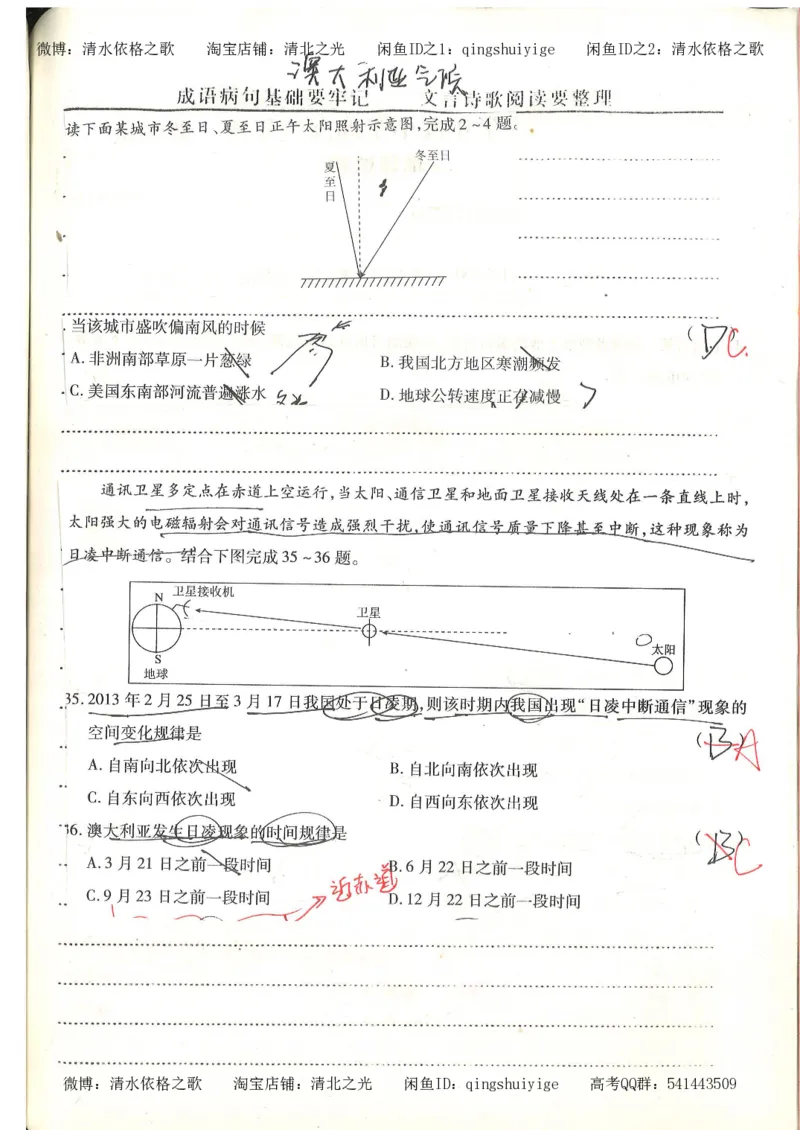 微博：清水依格之歌 淘宝店铺：清北之光 闲鱼ID之1：qingshuiyige 闲鱼ID之2：清水依格之歌
澳大利亚
成语病句基础要牢记 文言诗歌阅读要整理
读下面某城市冬至日、夏至日正午太阳照射示意图,完成2～4题。
冬至日
夏至日
当该城市盛吹偏南风的时候
(D) C.
A. 非洲南部草原一片葱绿
B. 我国北方地区寒潮频发
C. 美国东南部河流普遍涨水
D. 地球公转速度正在减慢
通讯卫星多定点在赤道上空运行,当太阳、通信卫星和地面卫星接收天线处在一条直线上时,
太阳强大的电磁辐射会对通讯信号造成强烈干扰,使通讯信号质量下降甚至中断,这种现象称为
日凌中断通信。结合下图完成35～36题。
卫星接收机
N
卫星
太阳
S
地球
35. 2013年2月25日至3月17日我国处于日凌期,则该时期内我国出现“日凌中断通信”现象的
空间变化规律是
(B) A
A. 自南向北依次出现
B. 自北向南依次出现
C. 自东向西依次出现
D. 自西向东依次出现
36. 澳大利亚发生日凌现象的时间规律是
(B) C
A. 3月21日之前一段时间
B. 6月22日之前一段时间
C. 9月23日之前一段时间
近赤道
D. 12月22日之前一段时间
微博：清水依格之歌 淘宝店铺：清北之光 闲鱼ID：qingshuiyige 高考QQ群：541443509